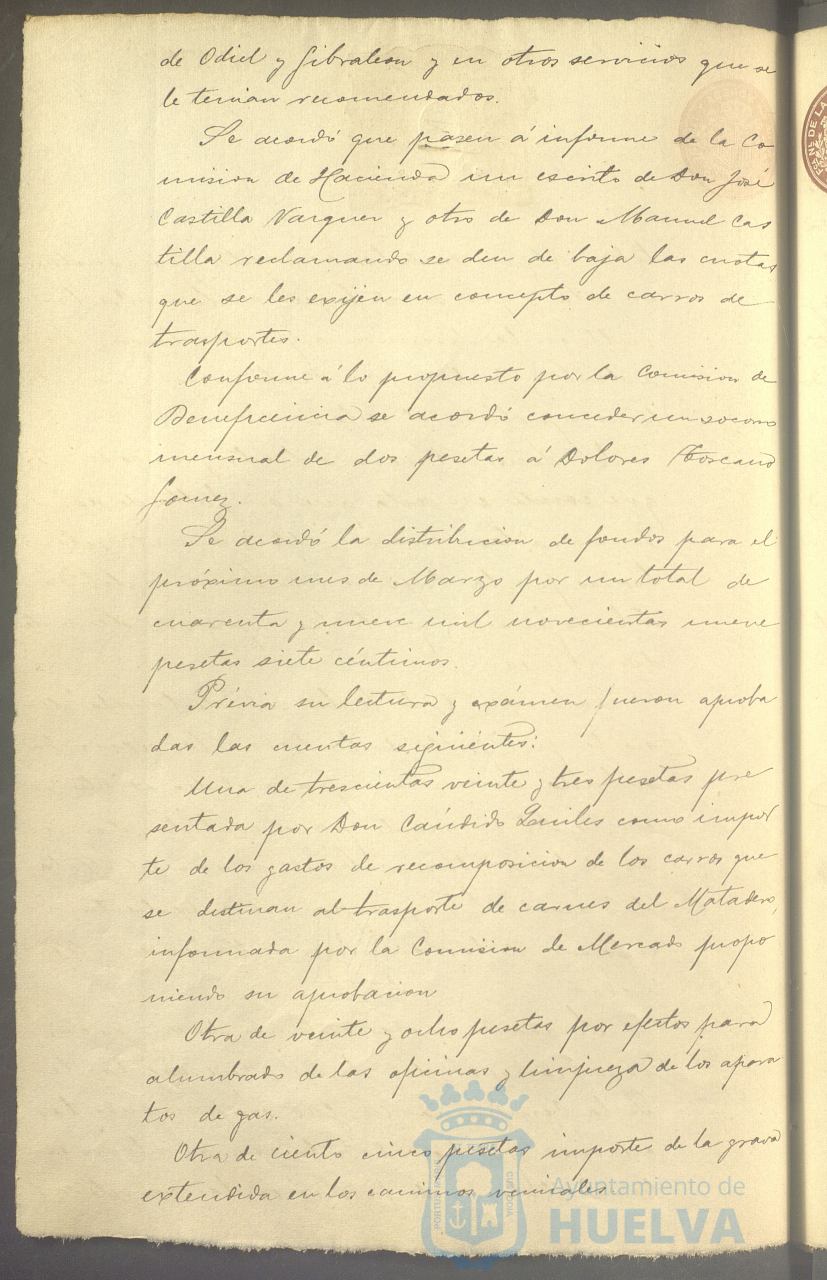 de Odiel y Gibraleon y en otros servicios que se
le tenian recomendados.
Se acordó que pasen á informe de la Co
mision de Hacienda un escrito de Don José
Castilla Varquer y otro de Don Manuel Cas
tilla reclamando se den de baja las cuotas
que se les exijen en concepto de carros de
trasportes.
Conforme á lo propuesto por la Comision de
Beneficencia se acordó conceder un socorro
mensual de dos pesetas á Dolores Toscano
Gomez.
Se acordó la distribucion de fondos para el
próximo mes de Marzo por un total de
cuarenta y nueve mil novecientas nueve
pesetas siete céntimos.
Prévia su lectura y exámen fueron aproba
das las cuentas siguientes:
Una de trescientas veinte y tres pesetas pre
sentada por Don Cándido Quiles como impor
te de los gastos de recomposicion de los carros que
se destinan al trasporte de carnes del Matadero,
informada por la Comision de Mercado propo
niendo su aprobacion
Otra de veinte y ocho pesetas por efectos para
alumbrado de las oficinas y limpieza de los apara
tos de gas.
Otra de ciento cinco pesetas importe de la grava
extendida en los caminos vecinales
Ayuntamiento de
HUELVA